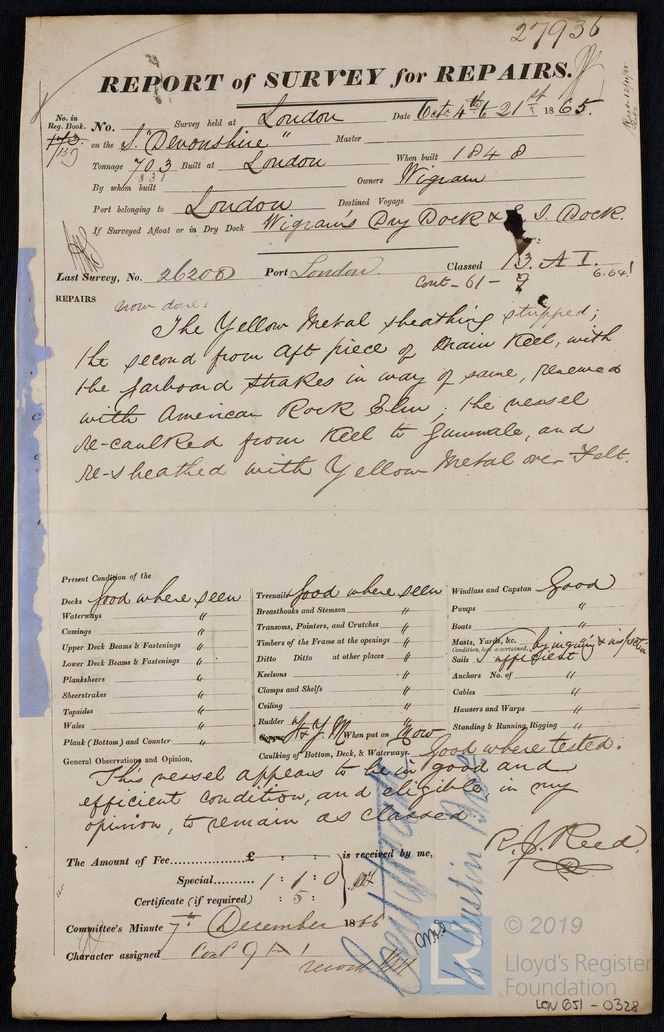 27936
REPORT of SURVEY for REPAIRS.
No. in Reg. Book.
No. Survey held at London Date Octr 4th & 21st 1865.
on the S. "Devonshire" Master
Tonnage 703 Built at London When built 1848
By whom built Owners Wigram
Port belonging to London Destined Voyage
If Surveyed Afloat or in Dry Dock Wigram's Dry Dock & E I. Dock.
Last Survey, No. 26208 Port London Classed 13. A I.
6.64
Cont - 61 - 9
REPAIRS now done:
The Yellow Metal sheathing stripped;
the second from aft piece of Main Keel, with
the garboard strakes in way of same, renewed
with American Rock Elm; the vessel
re-caulked from Keel to Gunwale, and
re-sheathed with Yellow Metal over Felt.
Present Condition of the
Decks Good where seen
Waterways "
Comings "
Upper Deck Beams & Fastenings "
Lower Deck Beams & Fastenings "
Planksheers "
Sheerstrakes "
Topsides "
Wales "
Plank (Bottom) and Counter "
Treenails Good where seen
Breasthooks and Stemson "
Transoms, Pointers, and Crutches "
Timbers of the Frame at the openings "
Ditto Ditto at other places "
Keelsons "
Clamps and Shelfs "
Ceiling "
Rudder "
Copper F & Y M When put on Now
Caulking of Bottom, Deck, & Waterways Good where tested.
Windlass and Capstan Good
Pumps "
Boats "
Masts, Yards, &c. by inquiry &
Condition, how ascertained,
Sails Sufficient
Anchors No. of "
Cables "
Hawsers and Warps "
Standing & Running Rigging "
General Observations and Opinion,
This vessel appears to be in good and
efficient condition, and eligible in my
opinion, to remain as classed
R. J. Reed
The Amount of Fee £ : : is received by me,
Special 1 : 1 : 0
Certificate (if required) : 5 :
Committee's Minute 7th December 1866
Character assigned Cont 9 A 1
© 2019
Lloyd's Register
Foundation
LON 651 - 0328